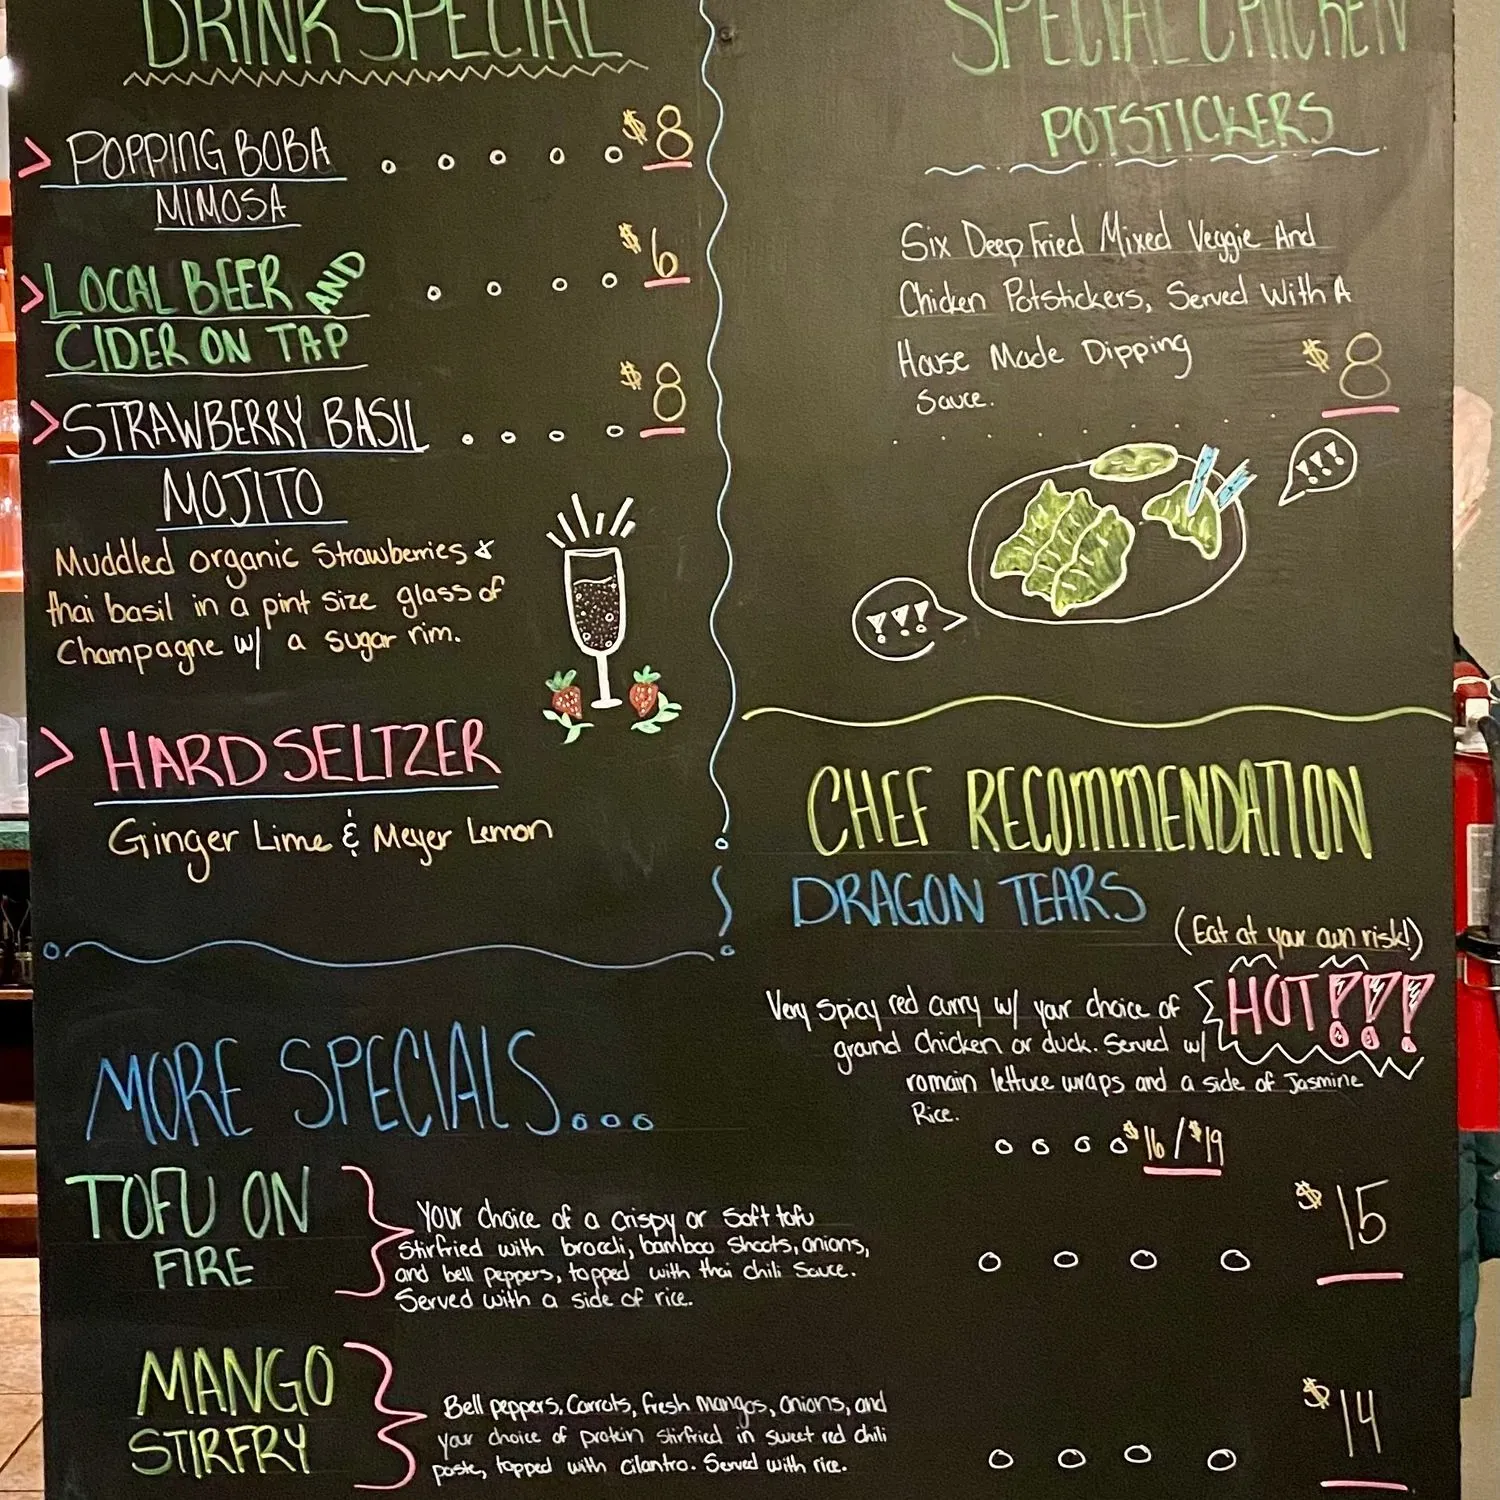 DRINK SPECIAL
> POPPING BOBA $8
MIMOSA
> LOCAL BEER AND $6
CIDER ON TAP
> STRAWBERRY BASIL $8
MOJITO
Muddled organic strawberries &
thai basil in a pint size glass of
Champagne w/ a sugar rim.
> HARD SELTZER
Ginger Lime & Meyer Lemon
SPECIAL CHICKEN
POTSTICKERS
Six Deep Fried Mixed Veggie And
Chicken Potstickers, Served With A
House Made Dipping
Sauce. $8
!!!
!!!
CHEF RECOMMENDATION
DRAGON TEARS
(Eat at your own risk!)
HOT!!!
Very Spicy red curry w/ your choice of
ground Chicken or duck. Served w/
romain lettuce wraps and a side of Jasmine
Rice.
$16/$19
MORE SPECIALS...
TOFU ON
FIRE
Your choice of a crispy or soft tofu
Stirfried with broccli, bamboo shoots, onions,
and bell peppers, topped with thai chili sauce.
Served with a side of rice.
$15
MANGO
STIRFRY
Bell peppers, Carrots, fresh mangos, onions, and
your choice of protein stirfried in sweet red chili
paste, topped with cilantro. Served with rice.
$14